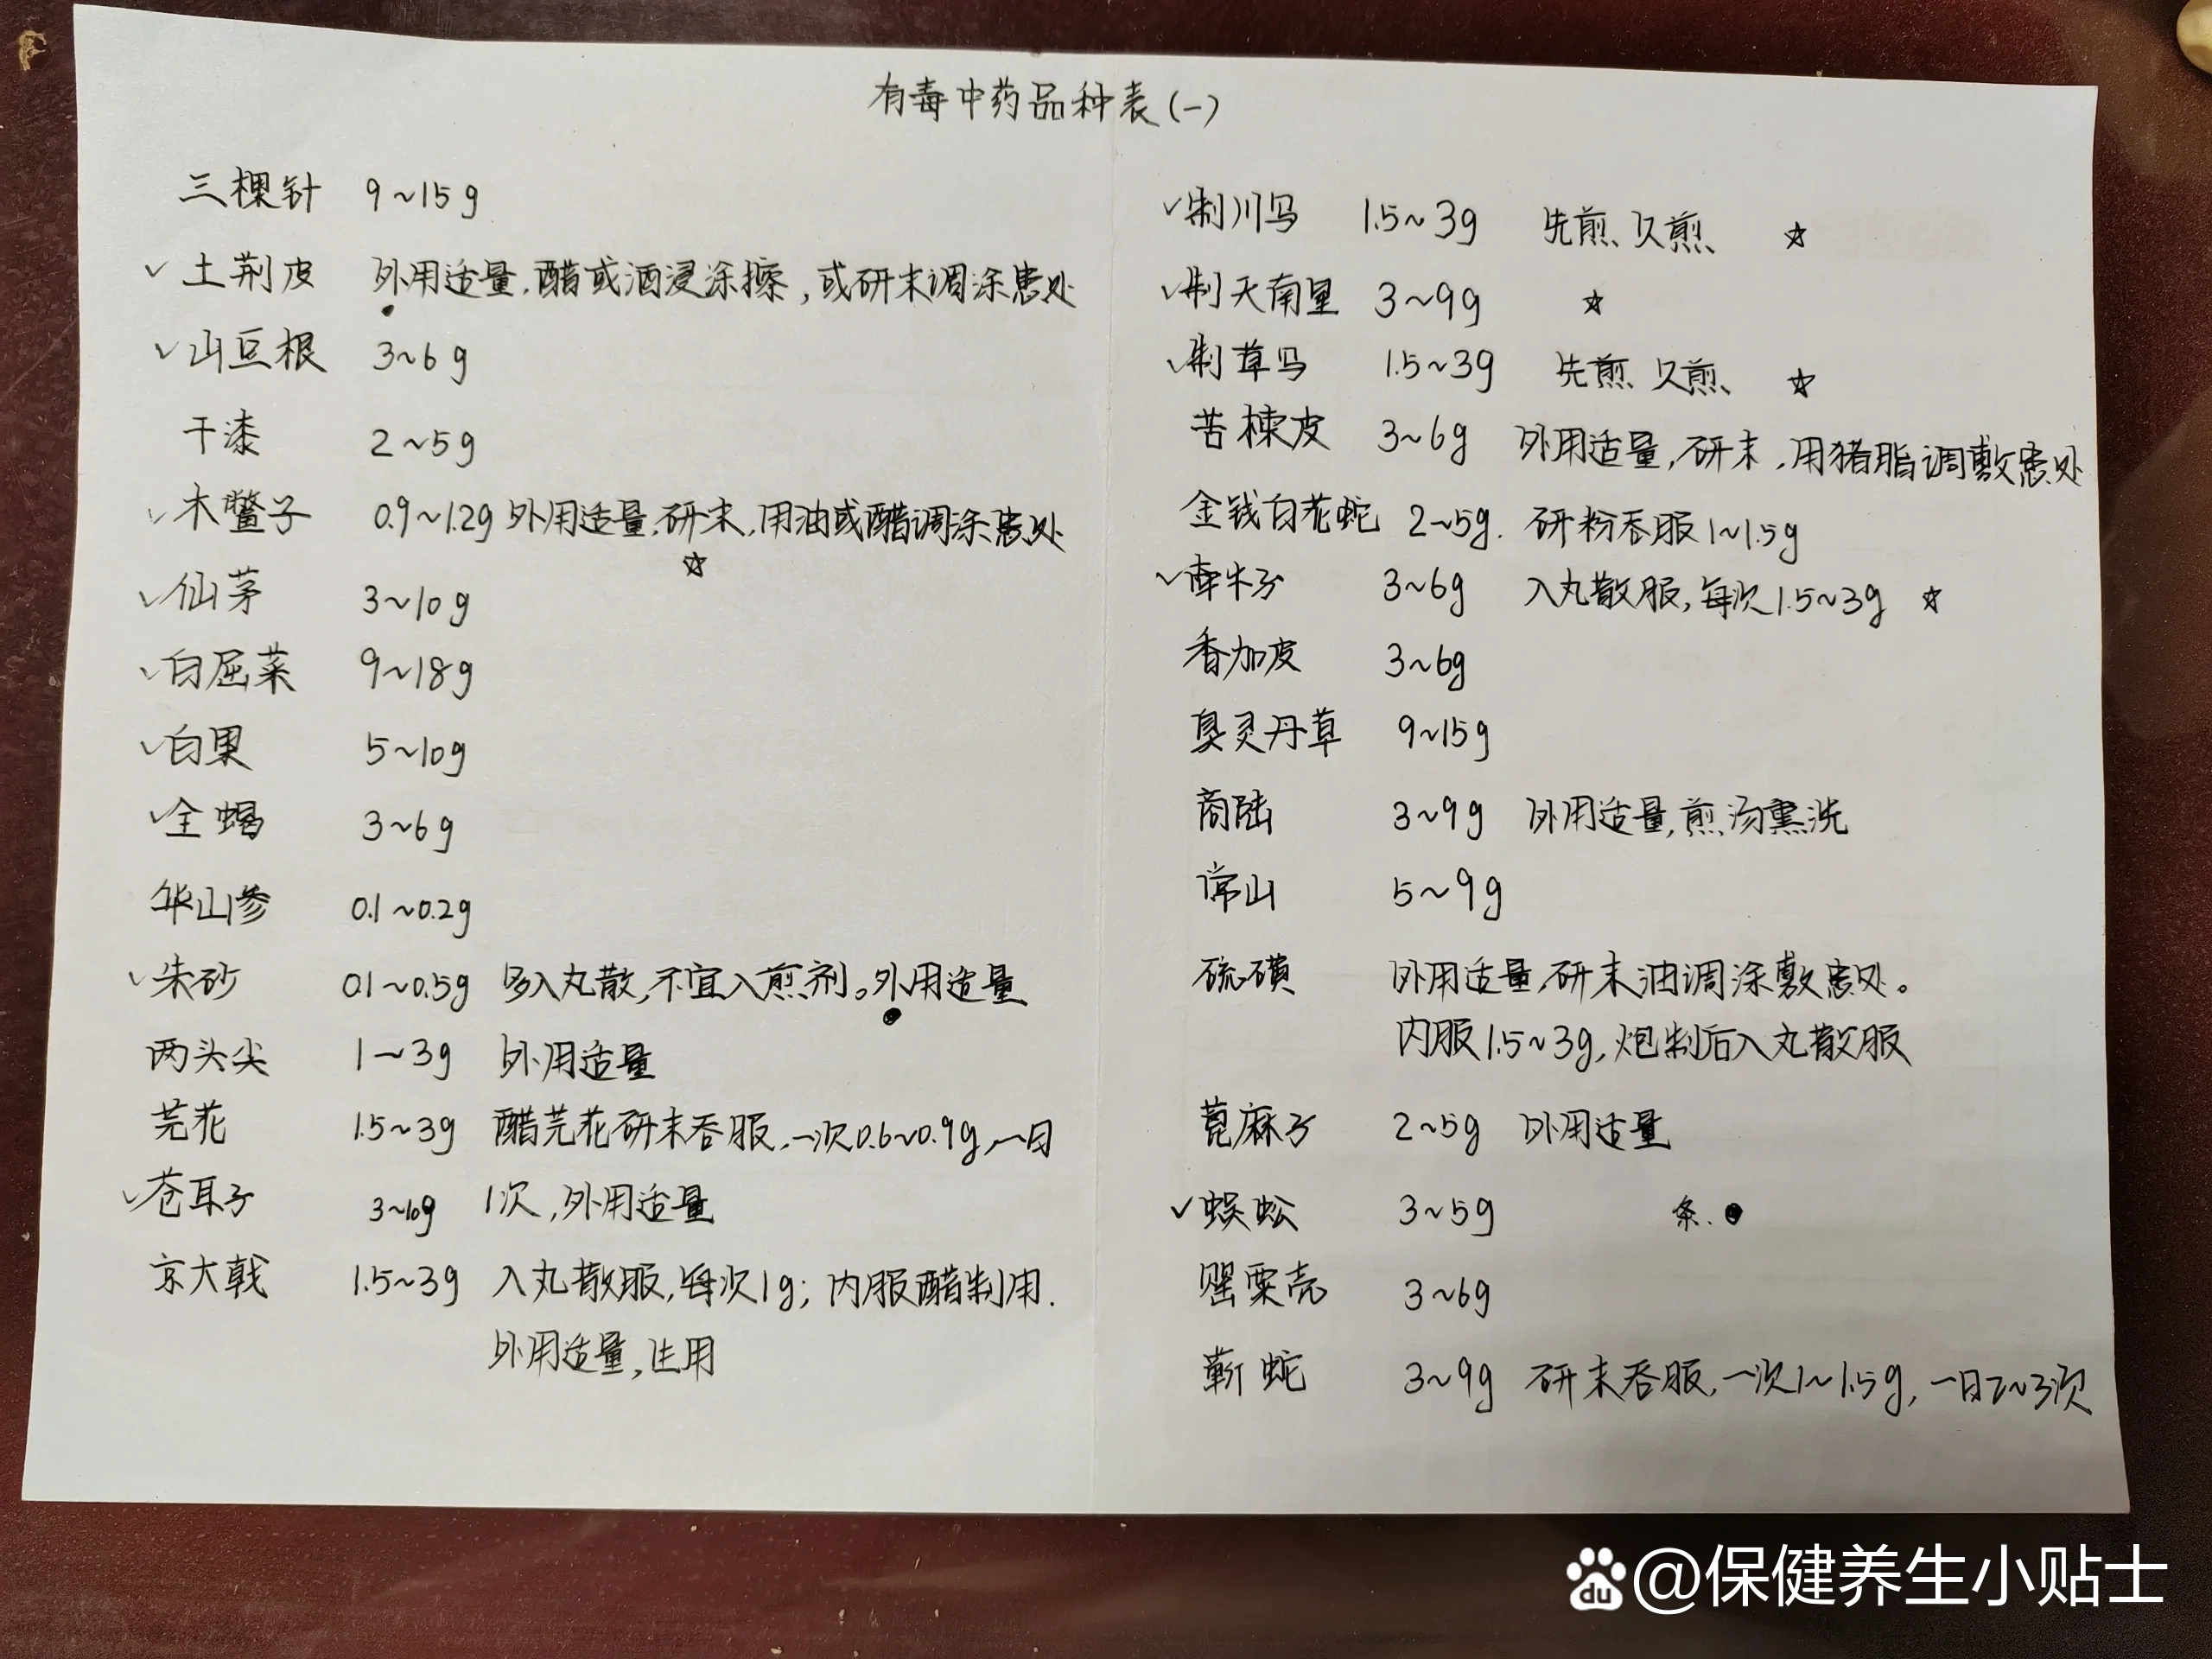 有毒中药品种表(一)
三棵针 9~15g
✓土荆皮 外用适量,醋或酒浸涂擦,或研末调涂患处
✓山豆根 3~6g
干漆 2~5g
✓木鳖子 0.9~1.2g 外用适量,研末,用油或醋调涂患处 ☆
✓仙茅 3~10g
✓白屈菜 9~18g
✓白果 5~10g
✓全蝎 3~6g
华山参 0.1~0.2g
✓朱砂 0.1~0.5g 多入丸散,不宜入煎剂。外用适量
两头尖 1~3g 外用适量
芫花 1.5~3g 醋芫花研末吞服,一次0.6~0.9g,一日
✓苍耳子 3~10g 1次,外用适量
京大戟 1.5~3g 入丸散服,每次1g;内服醋制用.
外用适量,生用
✓制川乌 1.5~3g 先煎、久煎、 ☆
✓制天南星 3~9g ☆
✓制草乌 1.5~3g 先煎、久煎、 ☆
苦楝皮 3~6g 外用适量,研末,用猪脂调敷患处
金钱白花蛇 2~5g. 研粉吞服1~1.5g
✓牵牛子 3~6g 入丸散服,每次1.5~3g ☆
香加皮 3~6g
臭灵丹草 9~15g
商陆 3~9g 外用适量,煎汤熏洗
常山 5~9g
硫磺 外用适量,研末油调涂敷患处。
内服1.5~3g,炮制后入丸散服
蓖麻子 2~5g 外用适量
✓蜈蚣 3~5g 条.
罂粟壳 3~6g
蕲蛇 3~9g 研末吞服,一次1~1.5g,一日2~3次
du @保健养生小贴士